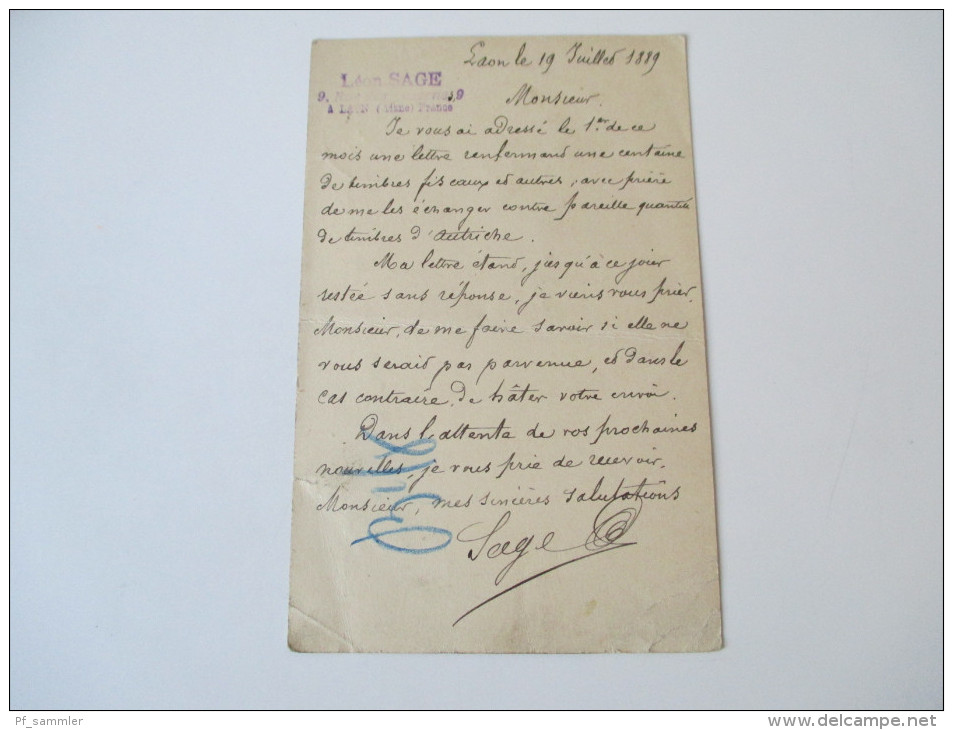 Laon le 19 Juillet 1889
Léon SAGE
9, 9
A LAON (Aisne) France
Monsieur.
Je vous ai adressé le 1er de ce
mois une lettre renfermant une centaine
de timbres fiscaux et autres, avec prière
de me les échanger contre pareille quantité
de timbres d'Autriche.
Ma lettre étant, jusqu'à ce jour
restée sans réponse, je viens vous prier,
Monsieur, de me faire savoir si elle ne
vous serait pas parvenue, et dans le
cas contraire, de hâter votre envoi.
Dans l'attente de vos prochaines
nouvelles, je vous prie de recevoir,
Monsieur, mes sincères salutations
Sage
Pf_sammler
http://www.delcampe.net